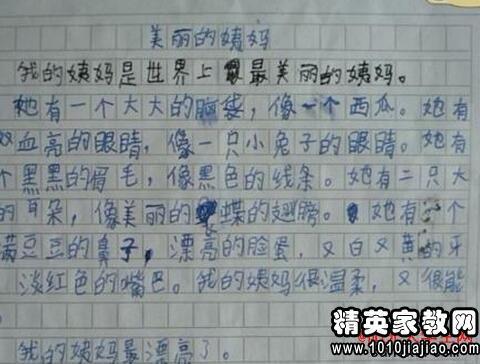 美丽的姨妈
我的姨妈是世界上最最美丽的姨妈。
她有一个大大的脑袋，像一个西瓜。她有
双血亮的眼睛，像一只小兔子的眼睛。她有
个黑黑的眉毛，像黑色的线条。她有二只大
的耳朵，像美丽的蝶的翅膀。她有个
满豆豆的鼻子，漂亮的脸蛋，又白又黄的牙
淡红色的嘴巴。我的姨妈很温柔，又很能
我的姨妈最漂亮了。
精英家教网
www.1010jiajiao.com